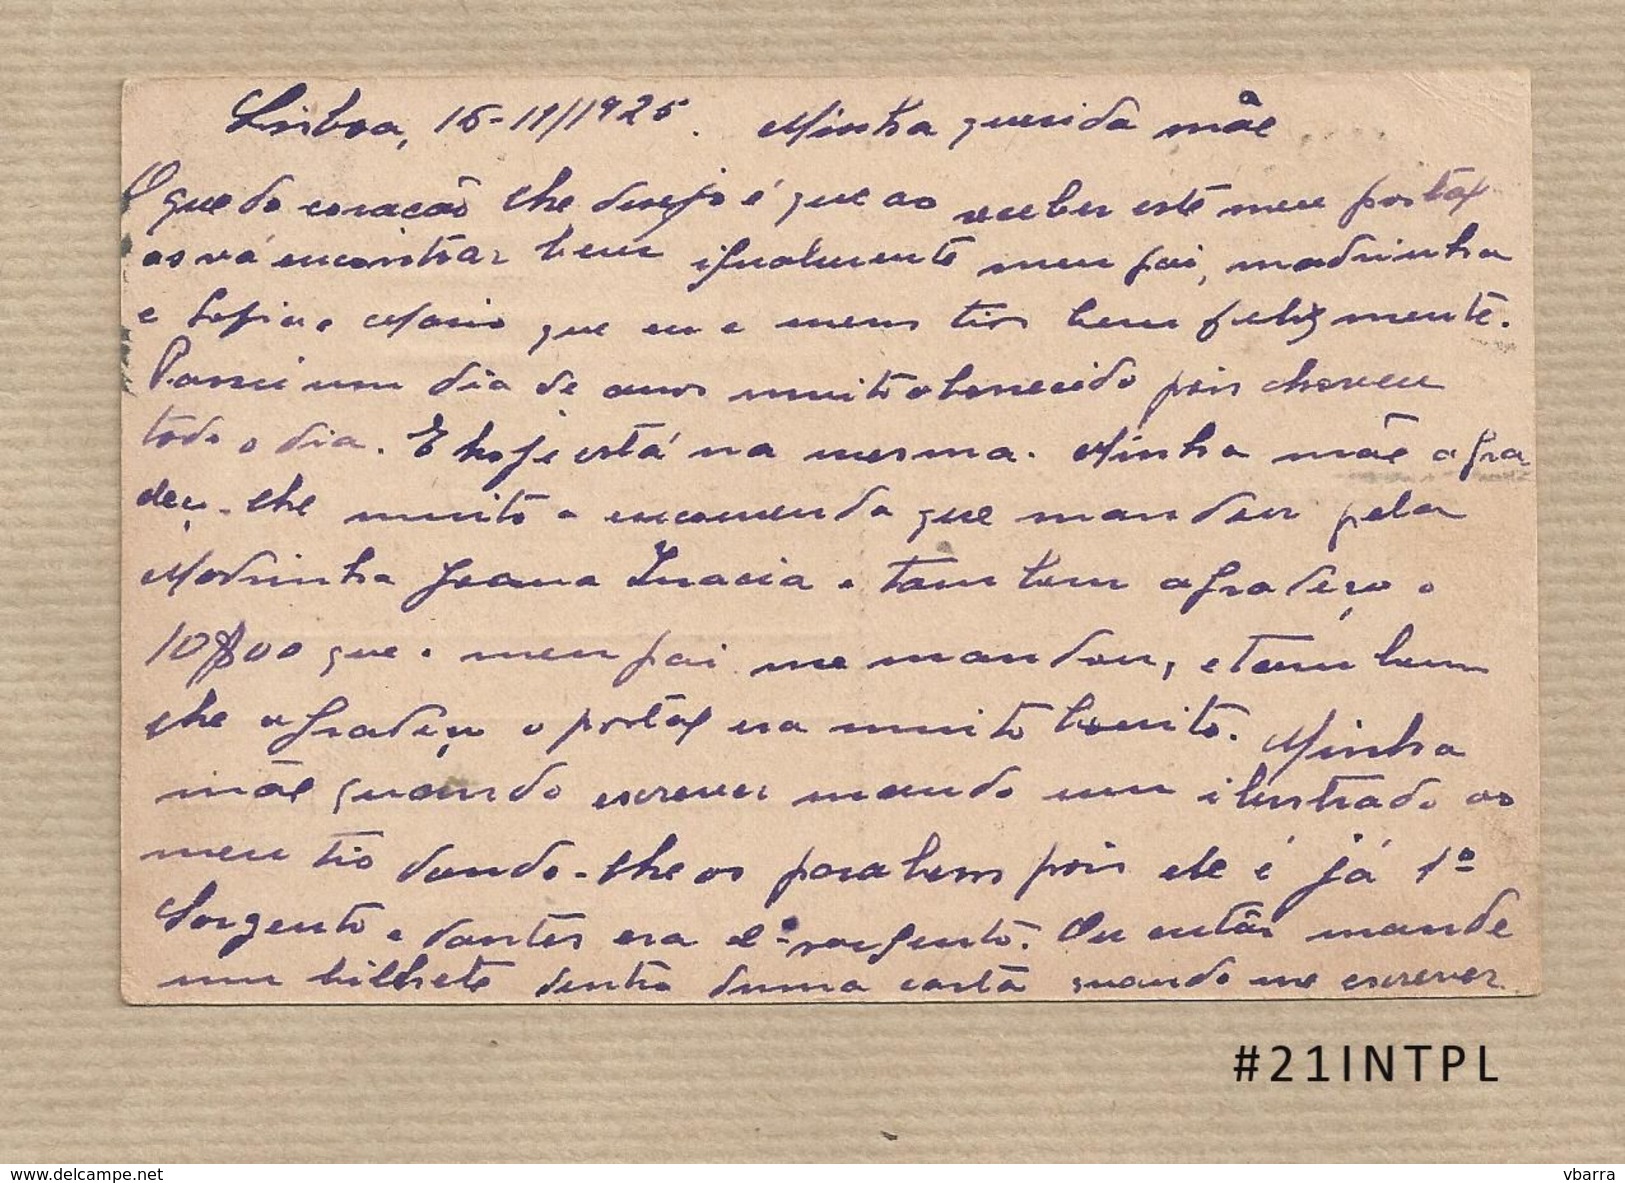 Lisboa, 16-11/1925. Minha querida mãe
O que do coração lhe desejo é que ao receber este meu postal
os vá encontrar bem igualmente meu pai, madrinha
e Sofia e Mario que eu e meus tios bem felizmente.
Passei um dia de anos muito aborrecido pois choveu
todo o dia. E hoje está na mesma. Minha mãe agra
deço-lhe muito a encomenda que mandou pela
Madrinha Joana Inacia e tambem agradeço o
10$00 que o meu pai me mandou, e tambem
lhe agradeço o postal era muito bonito. Minha
mãe quando escrever mande um ilustrado ao
meu tio dando-lhe os parabens pois ele é já 1º
Sargento e dantes era 2º sargento. Ou então mande
um bilhete dentro duma carta quando me escrever
#21INTPL
www.delcampe.net
vbarra